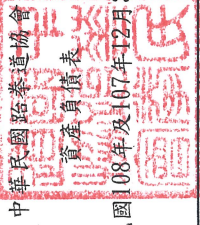 中華民國跆拳道協會
資產負債表
國108年及107年12月